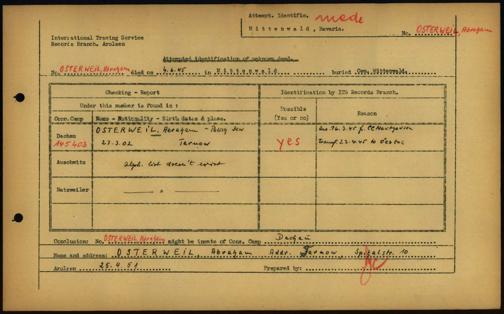 Attempt. Identific. made
Mittenwald, Bavaria.
No. OSTERWEIL, Abraham
International Tracing Service
Records Branch, Arolsen
Attempted identification of unknown dead.
No. OSTERWEIL, Abraham died on 4.6.45 in Mittenwald buried Cem. Mittenwald.
Checking - Report
Identification by ITS Records Branch.
Under this number is found in:
Possible
(You or no)
Reason
Conc.Camp
Name - Nationality - Birth dates & place.
Dachau
145403
OSTERWEIL, Abraham - Polish Jew
23.3.02 Tarnow
yes
Auschwitz
alph. list doesn't exist
Natzweiler
"
Conclusion: No. OSTERWEIL, Abraham might be inmate of Conc. Camp Dachau
Name and address: OSTERWEIL, Abraham Addr. Tarnow, 10
Arolsen 25.4.51
Prepared by: